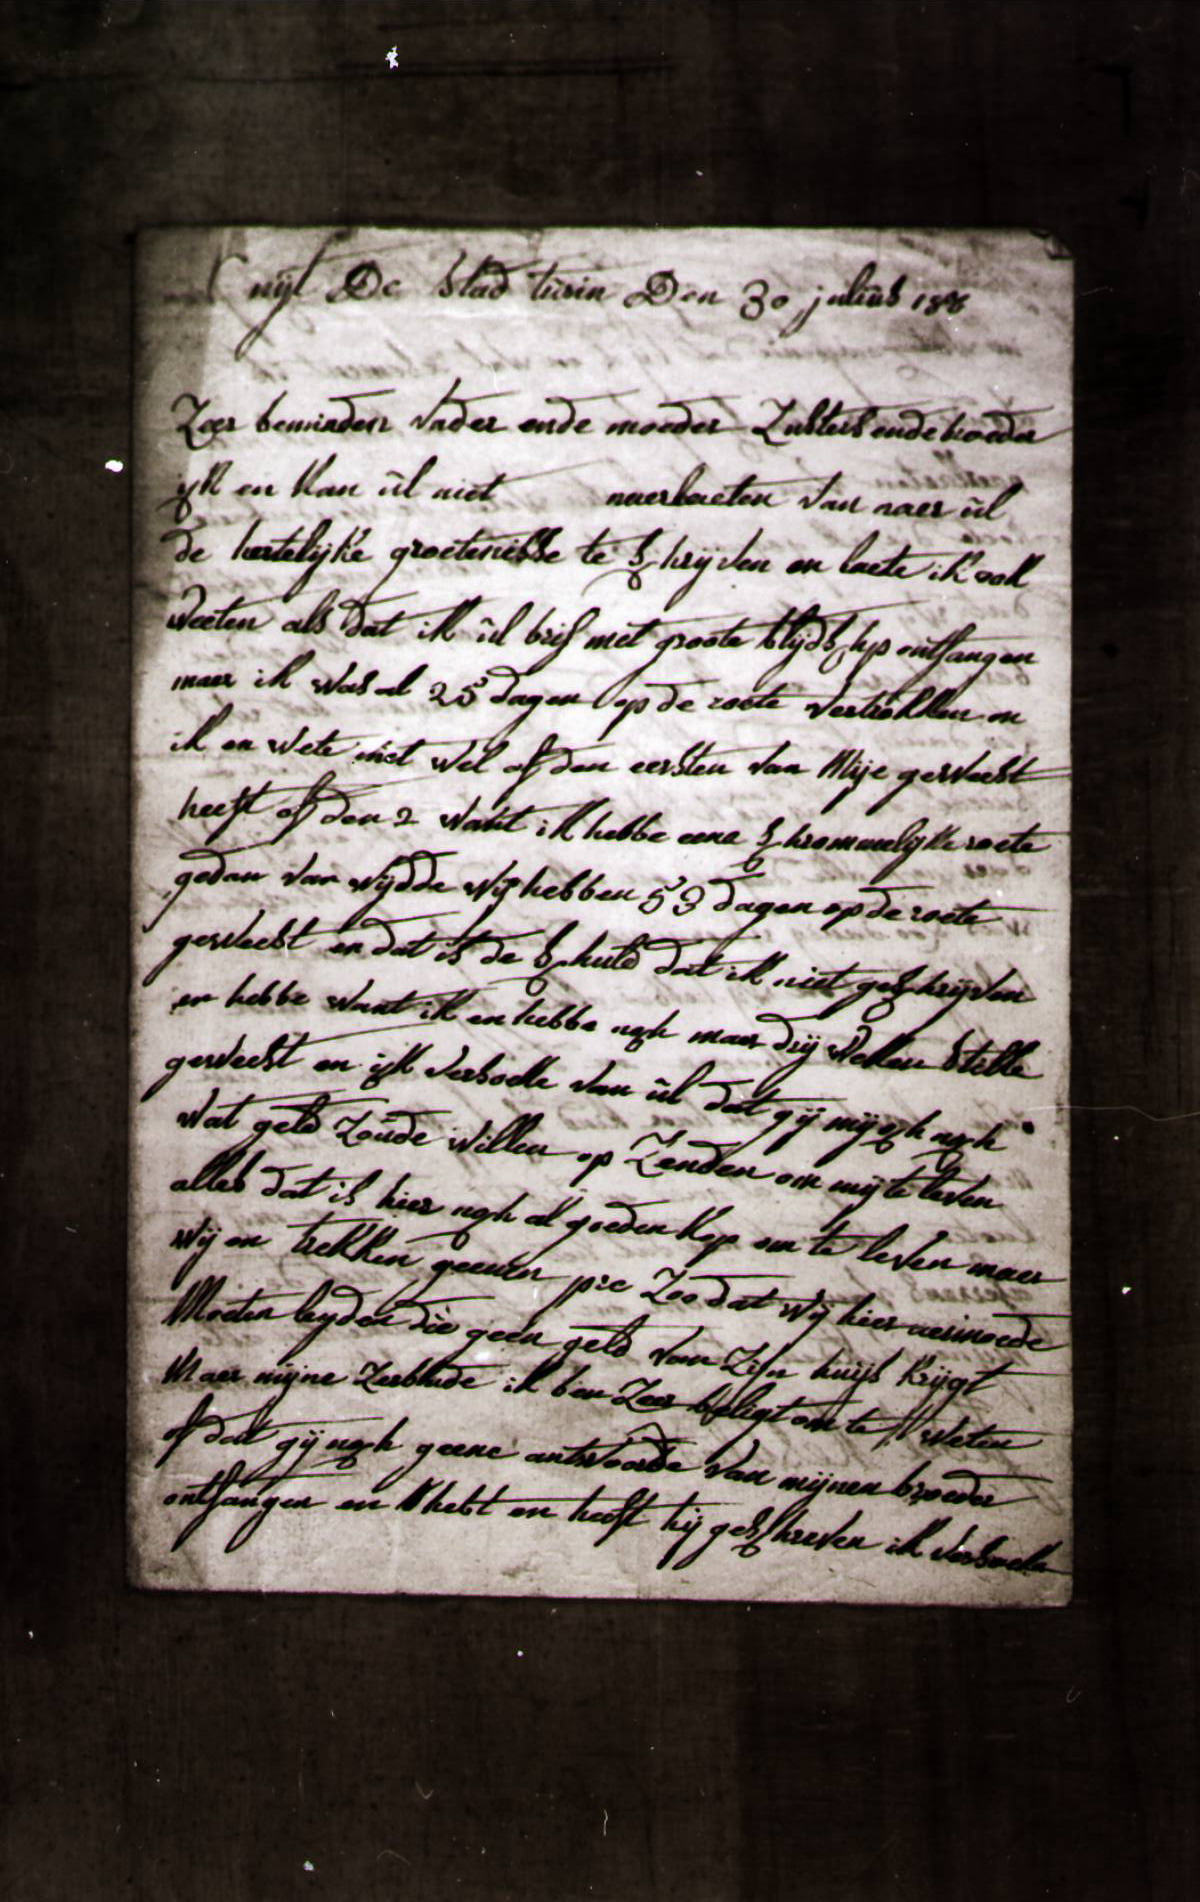 uijt De Stad turin Den 30 julius
Zeer beminden vader ende moeder Zusters ende broeder
ijk en kan ul niet naerlaeten van naer ul
de hertelijke groetenisse te schrijven en laete ik ook
weeten als dat ik ul brif met groote blijdschps ontfangen
maer ik was al 25 dagen op de roete vertrokken en
ik en wete niet wel of den eersten van Mije geweest
heeft of den 2 want ik hebbe eene schromelijke roete
gedan van wijdde wij hebben 53 dagen op de roete
geweest en dat is de schuld dat ik niet geschrijven
en hebbe want ik en hebbe noch maer drij Weken Stille
geweest en ijk versoeke van ul dat gij mijch noch
wat geld Zoude willen op Zenden om mij te leven
alles dat is hier noch al goeden kop om te leven maer
wij en trekken geenen pre Zoo dat wij hier aermoede
Moeten leyden die geen geld van Zijn huijs krijgt
Maer mijne ik ben Zeer om te weten
of dat gij noch geene antwoorde van mijnen broeder
ontfangen en khebt en heeft hij geschreven ik versoeke